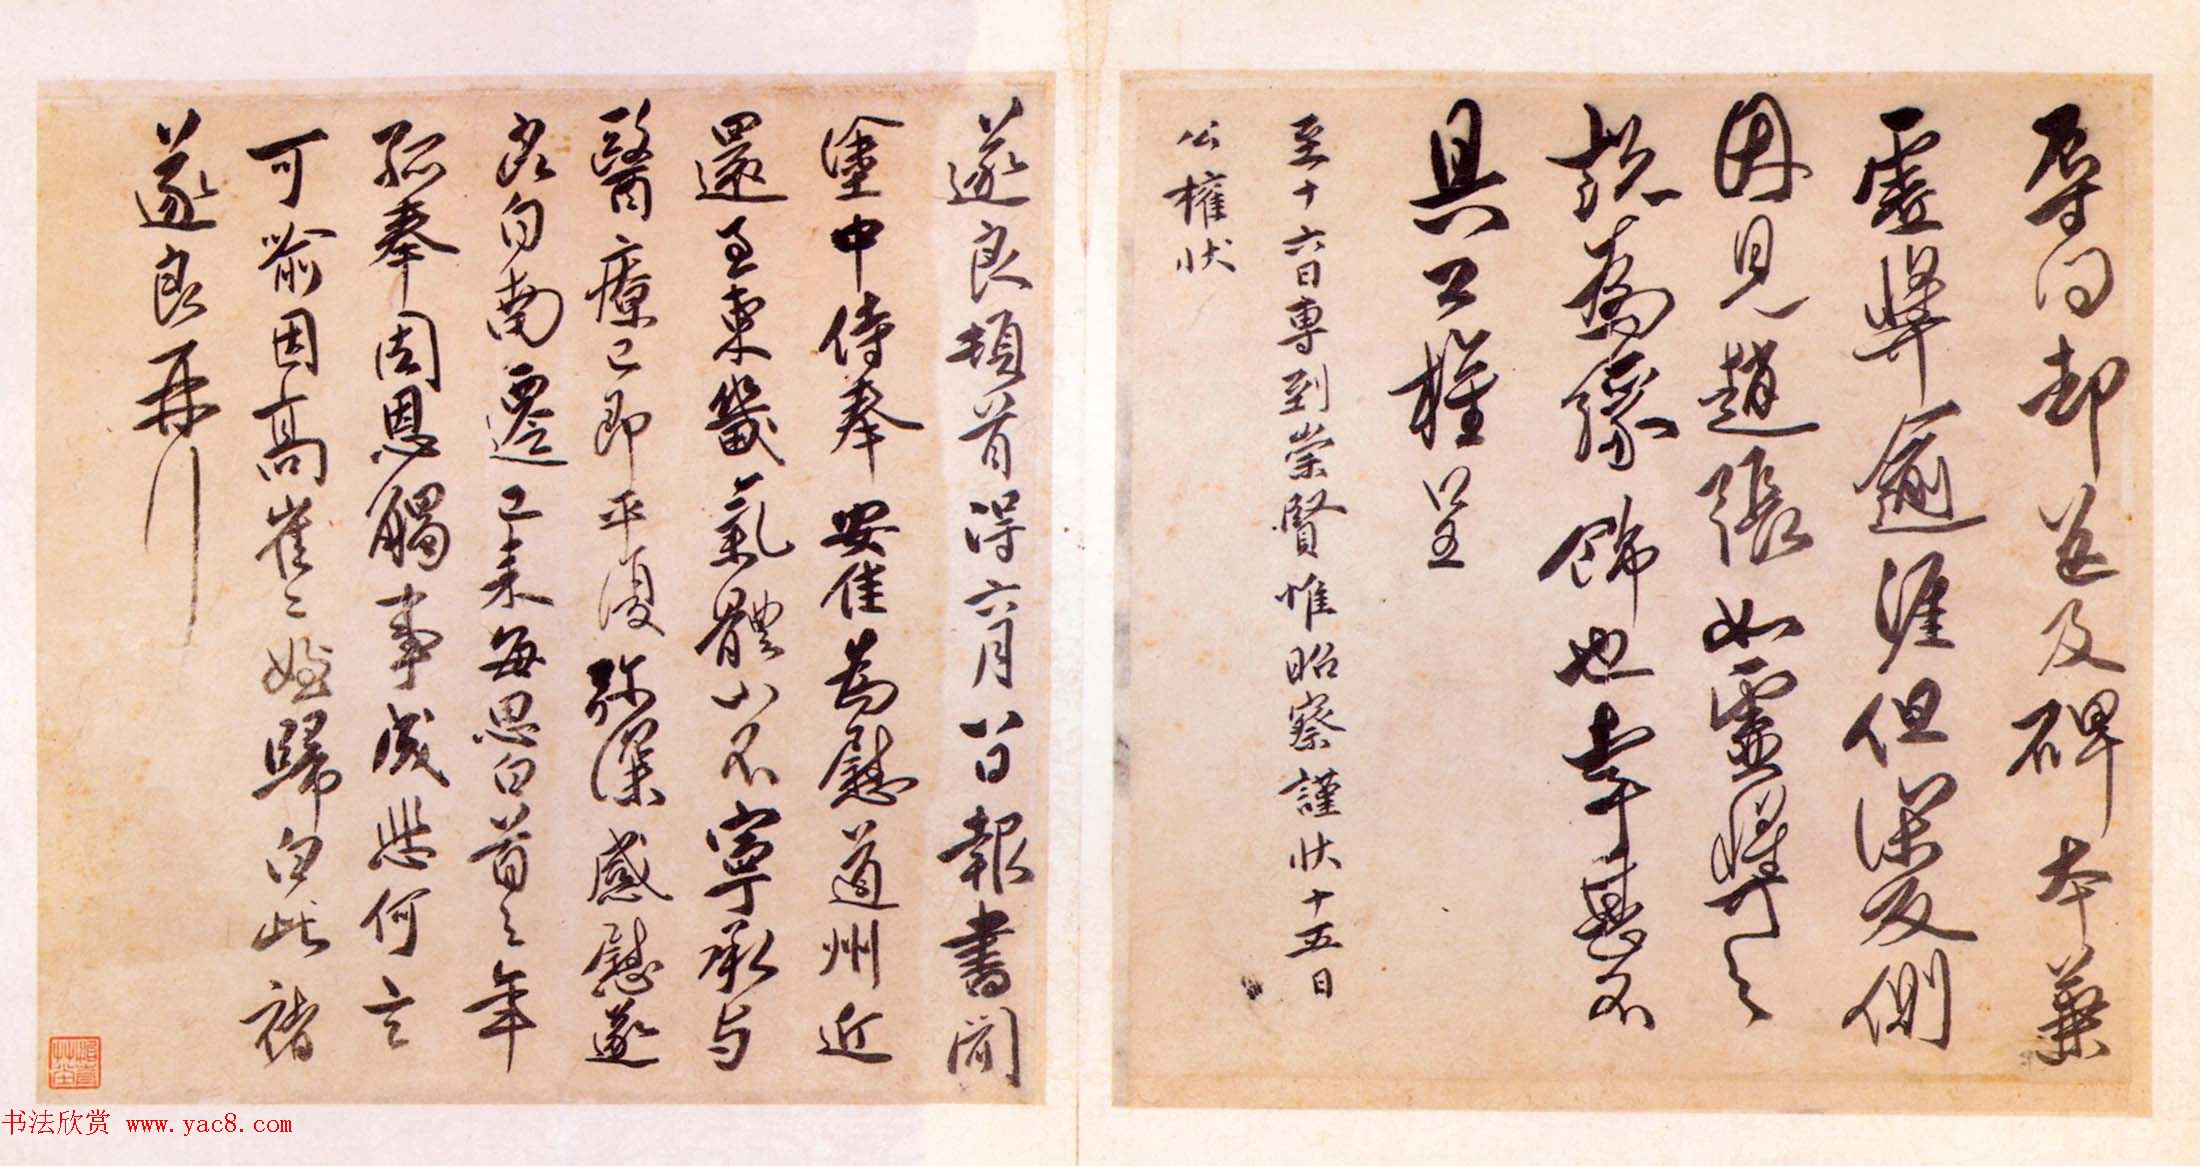 辱問卻送及碑本兼
虛獎逾涯但深反側
因見趙張如靈獎之
說為緣飾也幸甚不
具公權呈
至十六日專到崇賢惟昭察謹狀十五日
公權狀
遂良頓首得六月八日報書聞
塗中侍奉安佳為慰道州近
還至東畿氣體小不寧承与
醫療已即平復弥深感慰遂
良自南遷已来每思白首之年
孤奉恩觸事成悲何言
可喻因高崔二姪歸白此褚
遂良再拜
书法欣赏 www.yac8.com